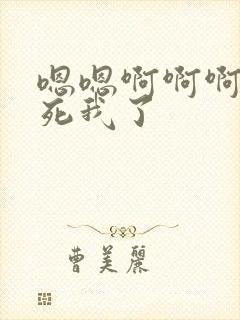 嗯嗯啊啊啊
死我了
曹美丽